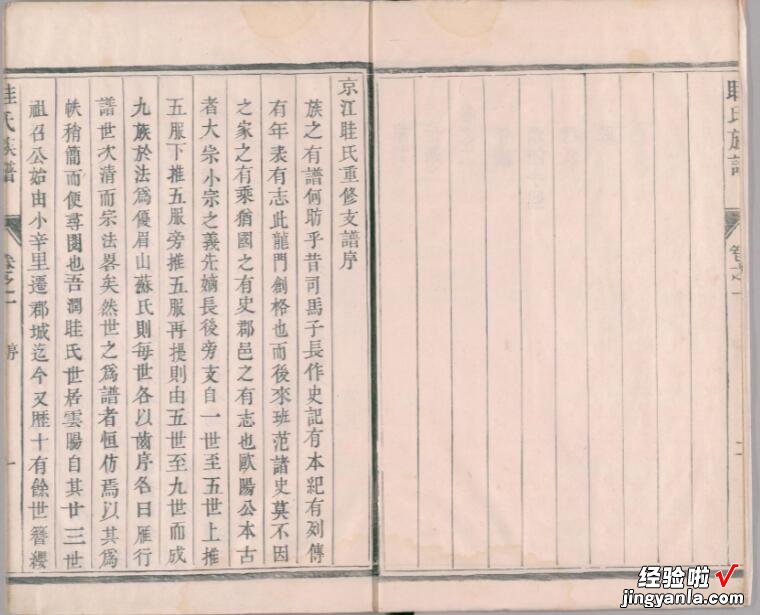 京江眭氏重修支譜序
族之有譜何昉乎昔司馬子長作史記有本紀有列傳
有年表有志此龍門創格也而後來班范諸史莫不因
之家之有乘猶國之有史郡邑之有志也歐陽公本古
者大宗小宗之義先嫡長後旁支自一世至五世上推
五服下推五服旁推五服再提則由五世至九世而成
九族於法爲優眉山蘇氏則每世各以齒序名曰雁行
譜世次清而宗法畧矣然世之爲譜者恒仿焉以其爲
帙稍簡而便尋閱也吾潤眭氏世居雲陽自其廿三世
祖召公始由小辛里遷郡城迄今又歷十有餘世簪纓
眭氏族譜
卷之一
序
一
眭氏族譜
卷之一
二
经验啦√
jingyanla.com